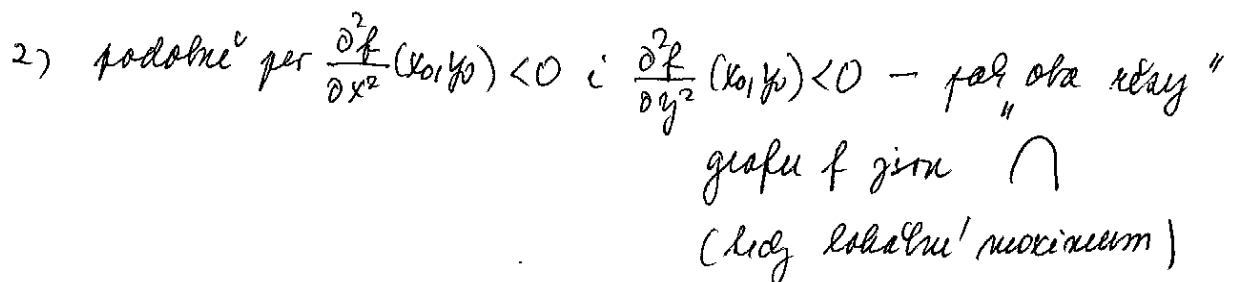 2) podobně pro ∂²f/∂x² (x₀,y₀) < 0 i ∂²f/∂y² (x₀,y₀) < 0 – pak oba „řezy"
grafu f jsou ∩
(tedy lokální maximum)